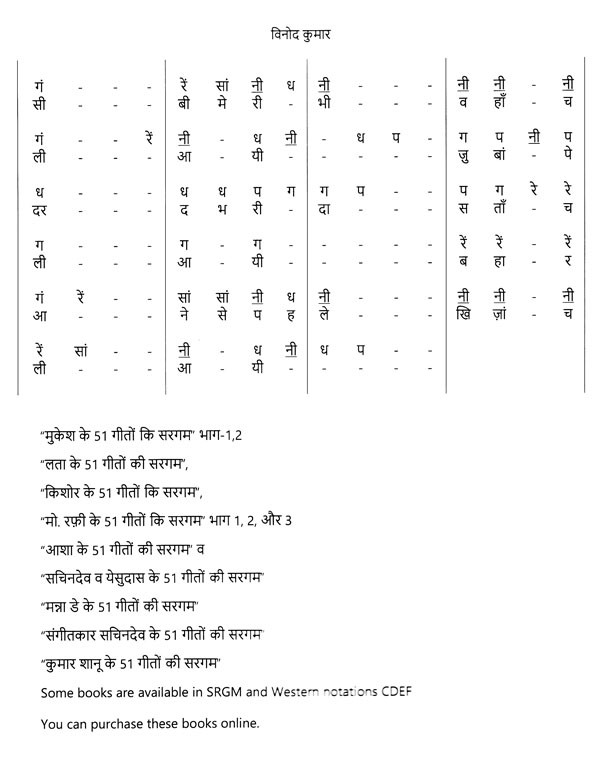 विनोद कुमार
गं - - - | रें सां नी ध | नी - - - | नी नी - नी
सी - - - | बी मे री - | भी - - - | व हाँ - च
गं - - रें | नी - ध नी | - ध प - | ग प नी प
ली - - - | आ - यी - | - - - - | जु बां - पे
ध - - - | ध ध प ग | ग प - - | प ग रे रे
दर - - - | द भ री - | दा - - - | स ताँ - च
ग - - - | ग - ग - | - - - - | रें रें - रें
ली - - - | आ - यी - | - - - - | ब हा - र
गं रें - - | सां सां नी ध | नी - - - | नी नी - नी
आ - - - | ने से प ह | ले - - - | खि ज़ां - च
रें सां - - | नी - ध नी | ध प - - |
ली - - - | आ - यी - | - - - - |
“मुकेश के 51 गीतों कि सरगम” भाग-1,2
“लता के 51 गीतों की सरगम”,
“किशोर के 51 गीतों कि सरगम”,
“मो. रफ़ी के 51 गीतों कि सरगम” भाग 1, 2, और 3
“आशा के 51 गीतों की सरगम” व
“सचिनदेव व येसुदास के 51 गीतों की सरगम”
“मन्ना डे के 51 गीतों की सरगम”
“संगीतकार सचिनदेव के 51 गीतों की सरगम”
“कुमार शानू के 51 गीतों की सरगम”
Some books are available in SRGM and Western notations CDEF
You can purchase these books online.